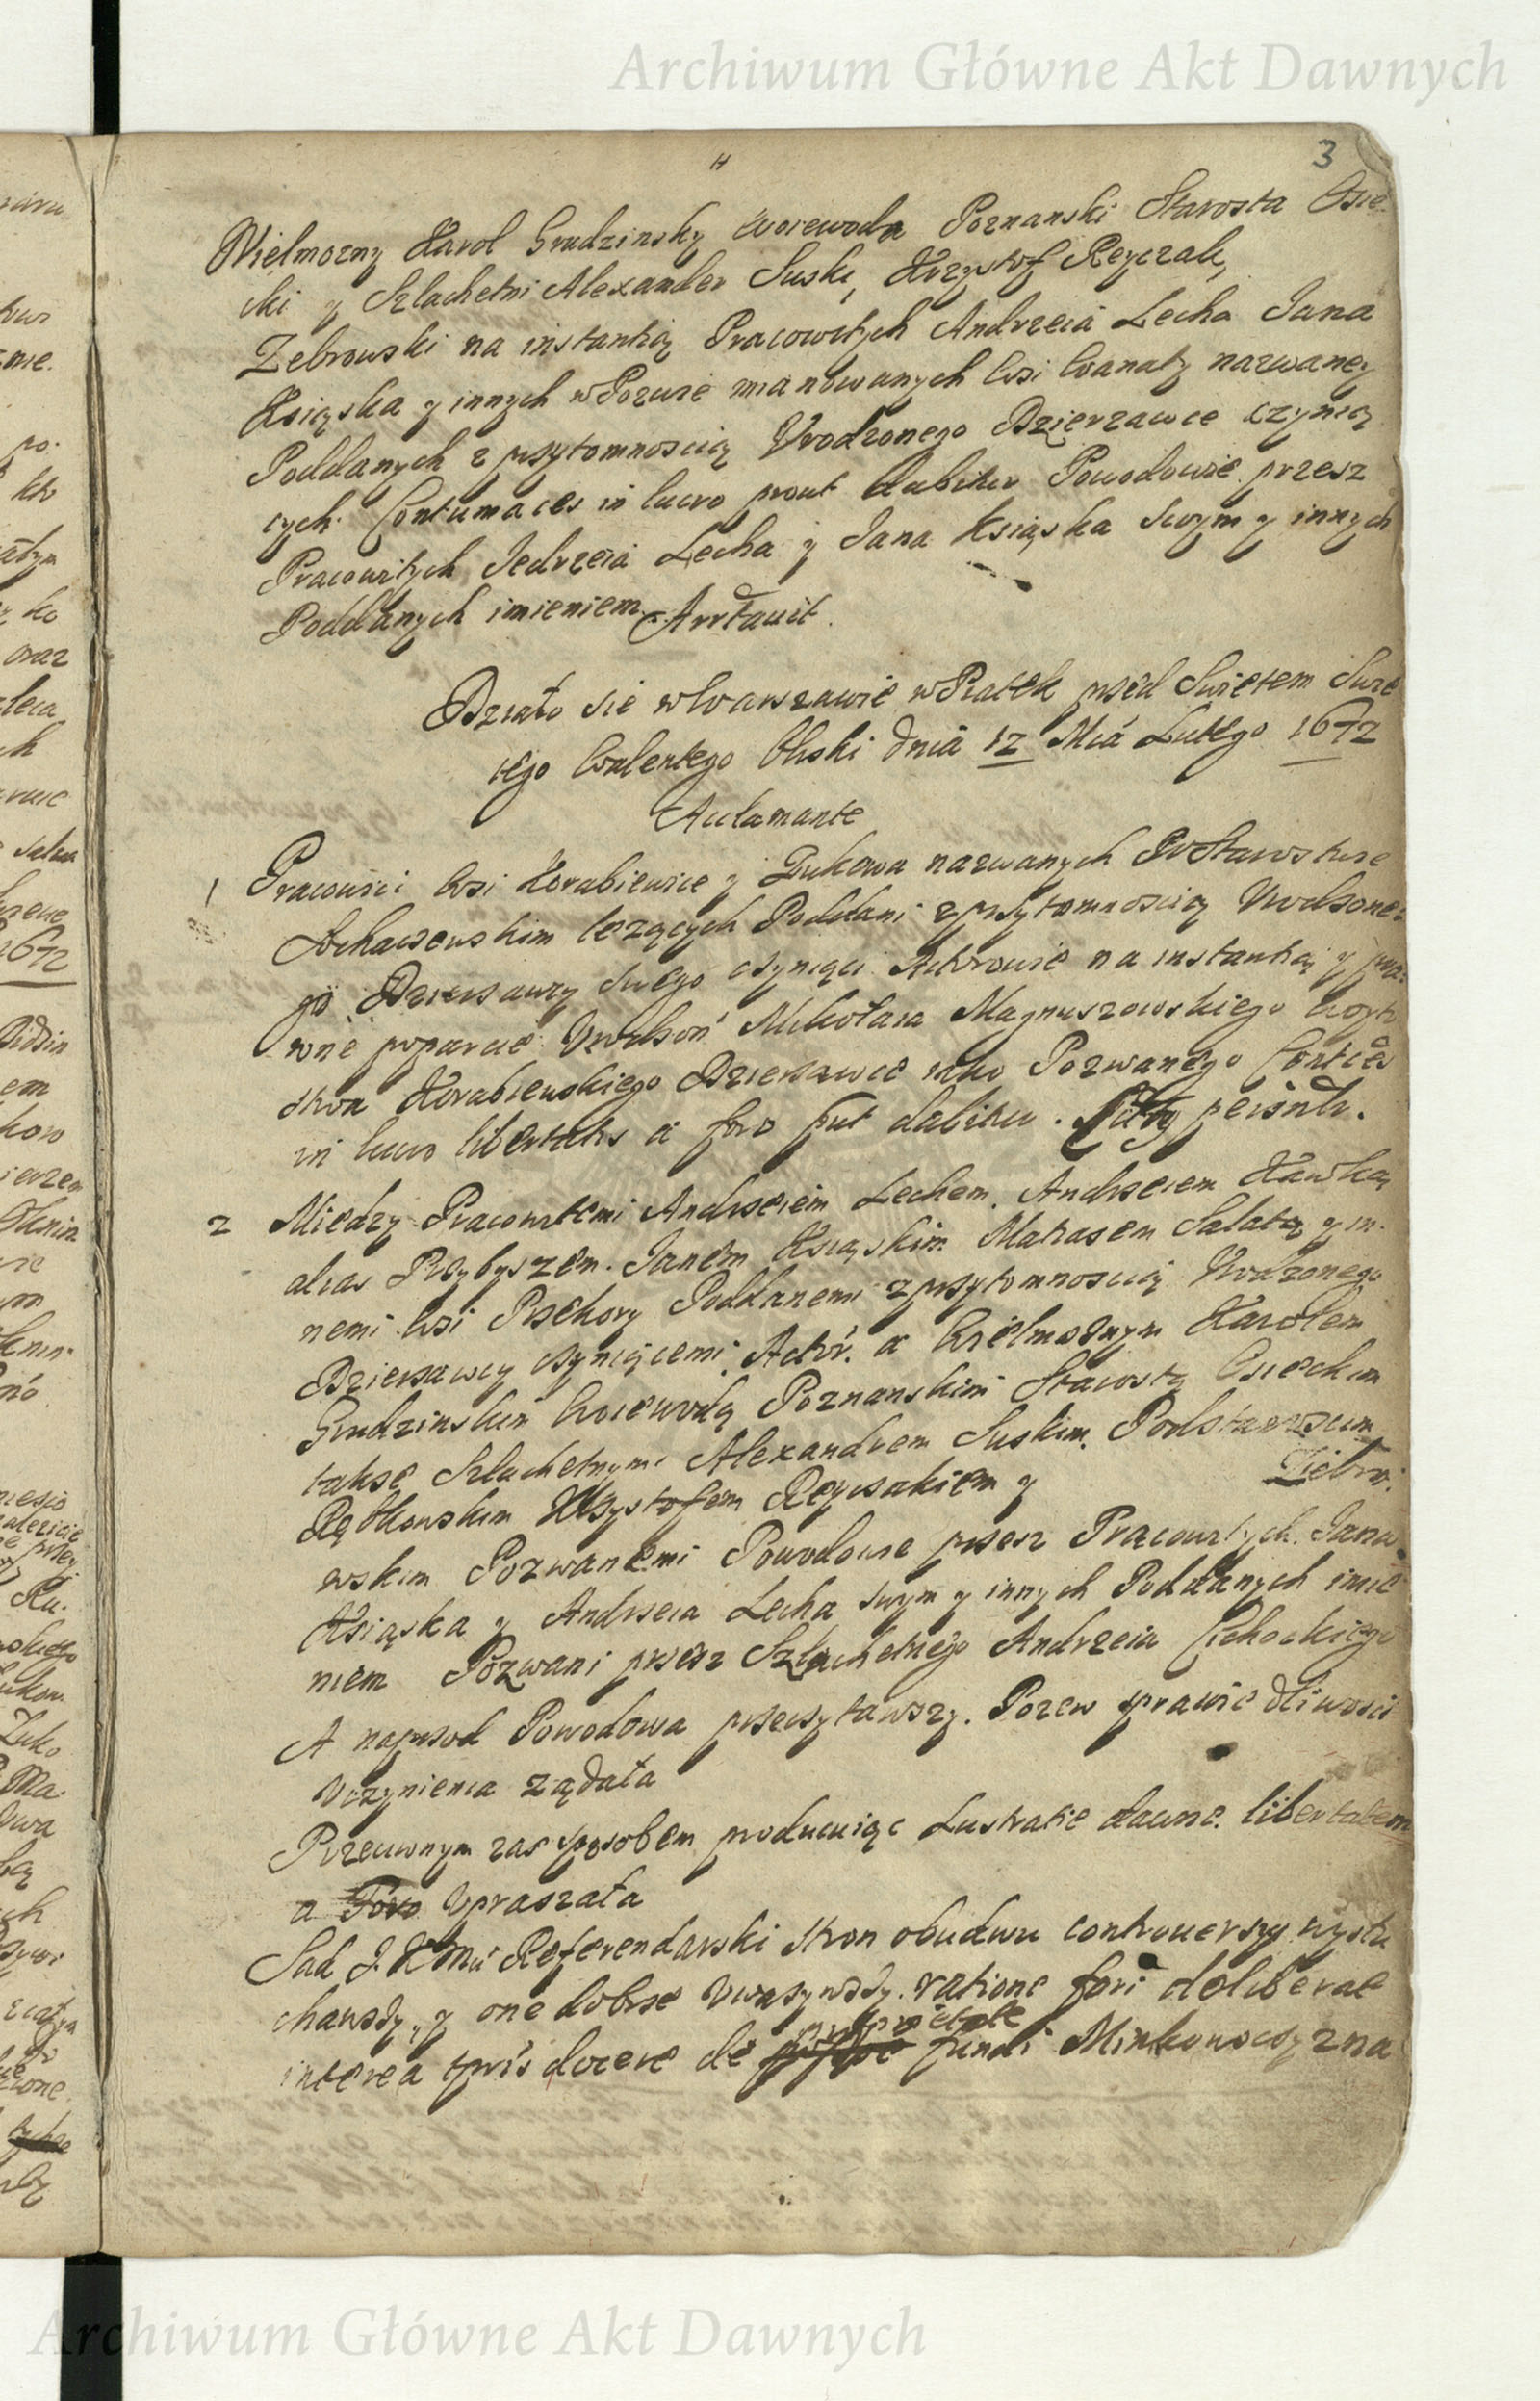 Archiwum Główne Akt Dawnych
3
Wielmozny Karol Grudzinsky Woiewoda Poznanski Starosta Osie
cki y Szlachetni Alexander Suski, Krzysztof Reyczak,
Zebrowski na instantią Pracowitych Andrzeia Lecha Jana
Książka y innych w Pozwie mianowanych Wsi nazwaney
Poddanych z przytomnoscią Vrodzonego Dzierzawce czynią
cych Contumaces in lucro prout dabitur Powodowie przesz
Pracowitych Jedrzeia Lecha y Jana Książka swym y innych
Poddanych imieniem
Działo sie w Warszawie w Piatek przed Swietem Swie
tego Walentego dnia 12 Mca Lutego 1672
Acclamante
1 Pracowici Wsi Korabiewice y Zukowa nazwanych w Starostwie
Sochaczewskim lezących Poddani z przytomnoscią Vrodzone
go Dzierzawcy swego czyniąci Aktorowie na instantią y pra
wne poparcie Vrodzon Mikołaia Magnuszowskiego Woyto
stwa Korabiewskiego Dzierzawce iako Pozwanego
in lucro libertatis a foro put dabitur.
2 Miedzy Pracowitemi Andrzeiem Lechem. Andrzeiem Kawką
alias Przybyszem. Janem Książkiem Matiasem Sałatą y in
nemi Wsi Poddanemi z przytomnoscią Vrodzonego
Dzierzawcy czyniącemi Actor. a Wielmoznym Karolem
Grudzinskim Woiewodą Poznanskim Starostą Osieckim
takze Szlachetnymi Alexandrem Suskim. Podstaroscim
Krzysztofem Reyczakiem y Ziebro.
wskim Pozwanemi Powodowie przesz Pracowitych. Jana
Książka y Andrzeia Lecha swym y innych Poddanych imie
niem Pozwani przesz Szlachetnego Andrzeia Cichockiego
A naprzod Powodowa przeczytawszy. Pozew sprawiedliwosci
Vczynienia ządała
Przeciwnym zas sposobem producuiąc Lustratie dawne. libertatem
a Foro Vpraszała
Sad J. K Mci Referendarski stron obudwu controuersyy wysłu
chawszy, y one dobrze Vwazywszy. ratione fori deliberat
interea docere de proprietate fundi
Archiwum Główne Akt Dawnych